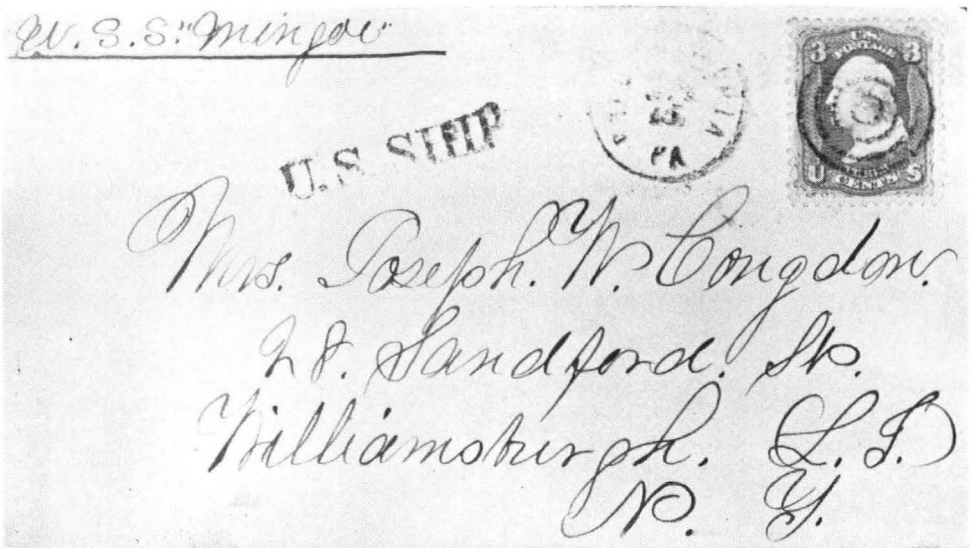 U.S.S. "Mingoe"
U.S. SHIP
PA
3 U.S. 3
POSTAGE
U CENTS S
Mrs. Joseph. W. Congdon.
28. Sandford. St.
Williamsburgh. L. I.
N. Y.